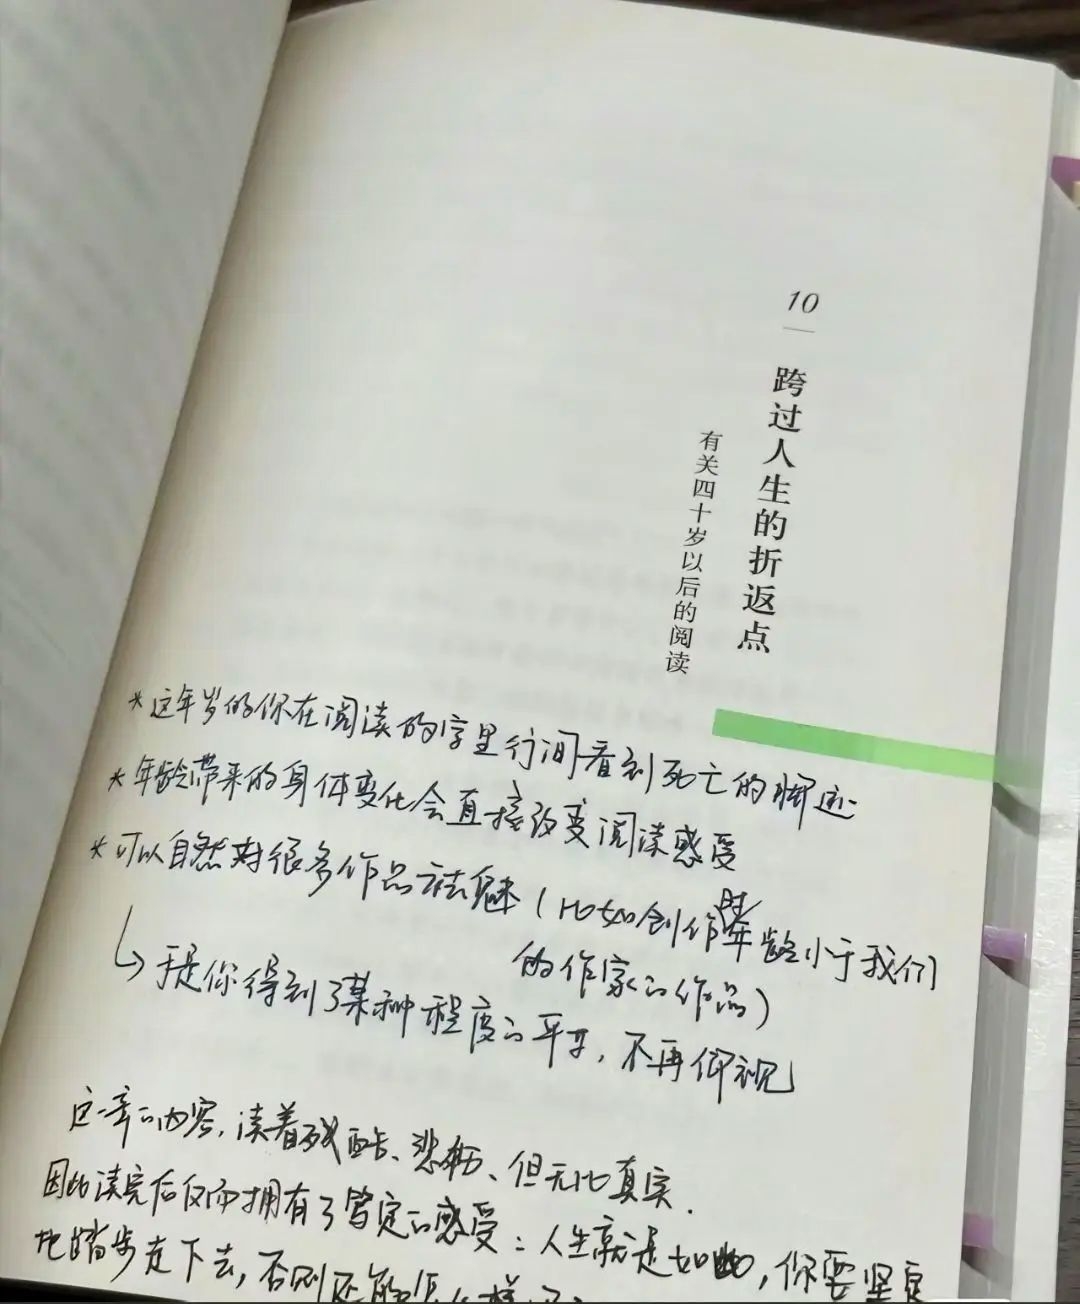 10
跨过人生的折返点
有关四十岁以后的阅读
*这年岁的你在阅读的字里行间看到死亡的脚迹
*年龄带来的身体变化会直接改变阅读感受
*可以自然对很多作品祛魅(比如创作年龄小于我们
的作家的作品)
↳于是你得到了某种程度的平等,不再仰视
这一章的内容,读着残酷、悲伤、但无比真实.
因此读完后反而拥有了笃定的感受:人生就是如此,你要坚定
地踏步走下去,否则还能怎么样呢